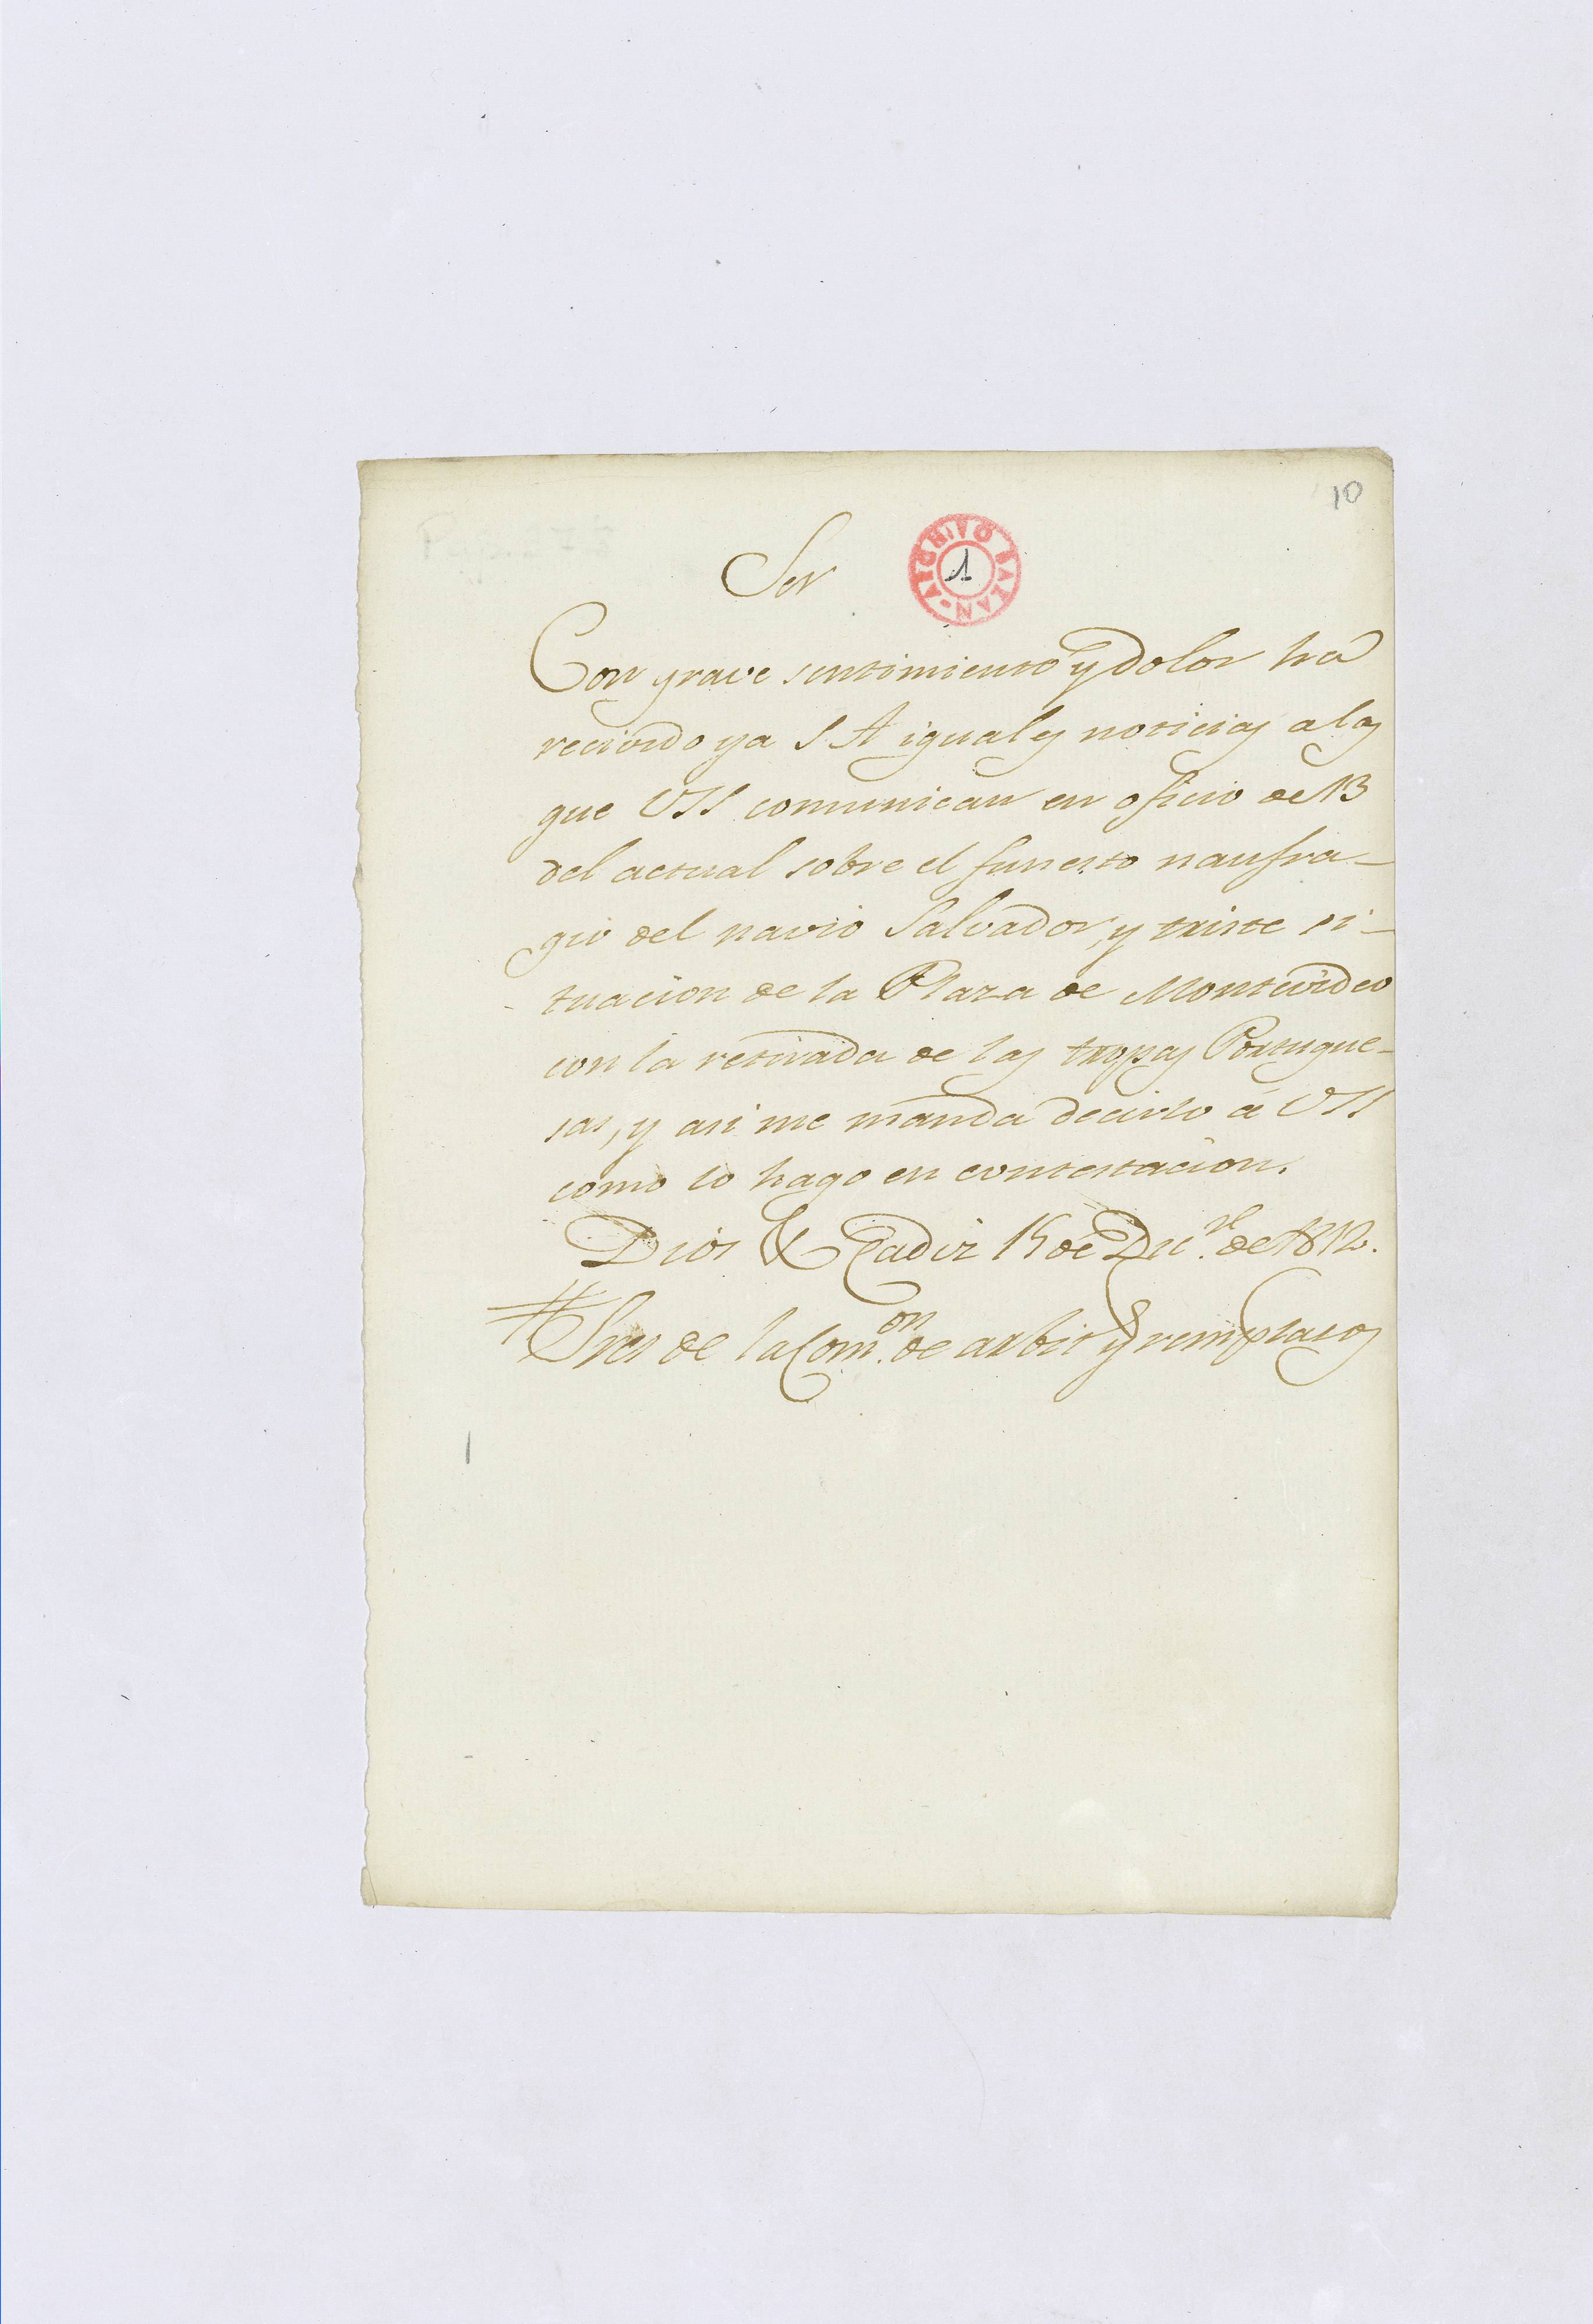 10
Ser
ARCHIVO BAZAN
1
Con grave sentimiento y dolor há
recivido ya S A iguales noticias a las
que VSS comunican en oficio de 13
del actual sobre el funesto naufra-
gio del navio Salvador, y triste si-
tuacion de la Plaza de Montevideo
con la retirada de las tropas Portugue-
sas, y asi me manda decirlo á VSS
como lo hago en contestacion.
Dios & Cadiz 15 de Dic.re de 1812.
Sres de la Com.on de arbit y remplazos